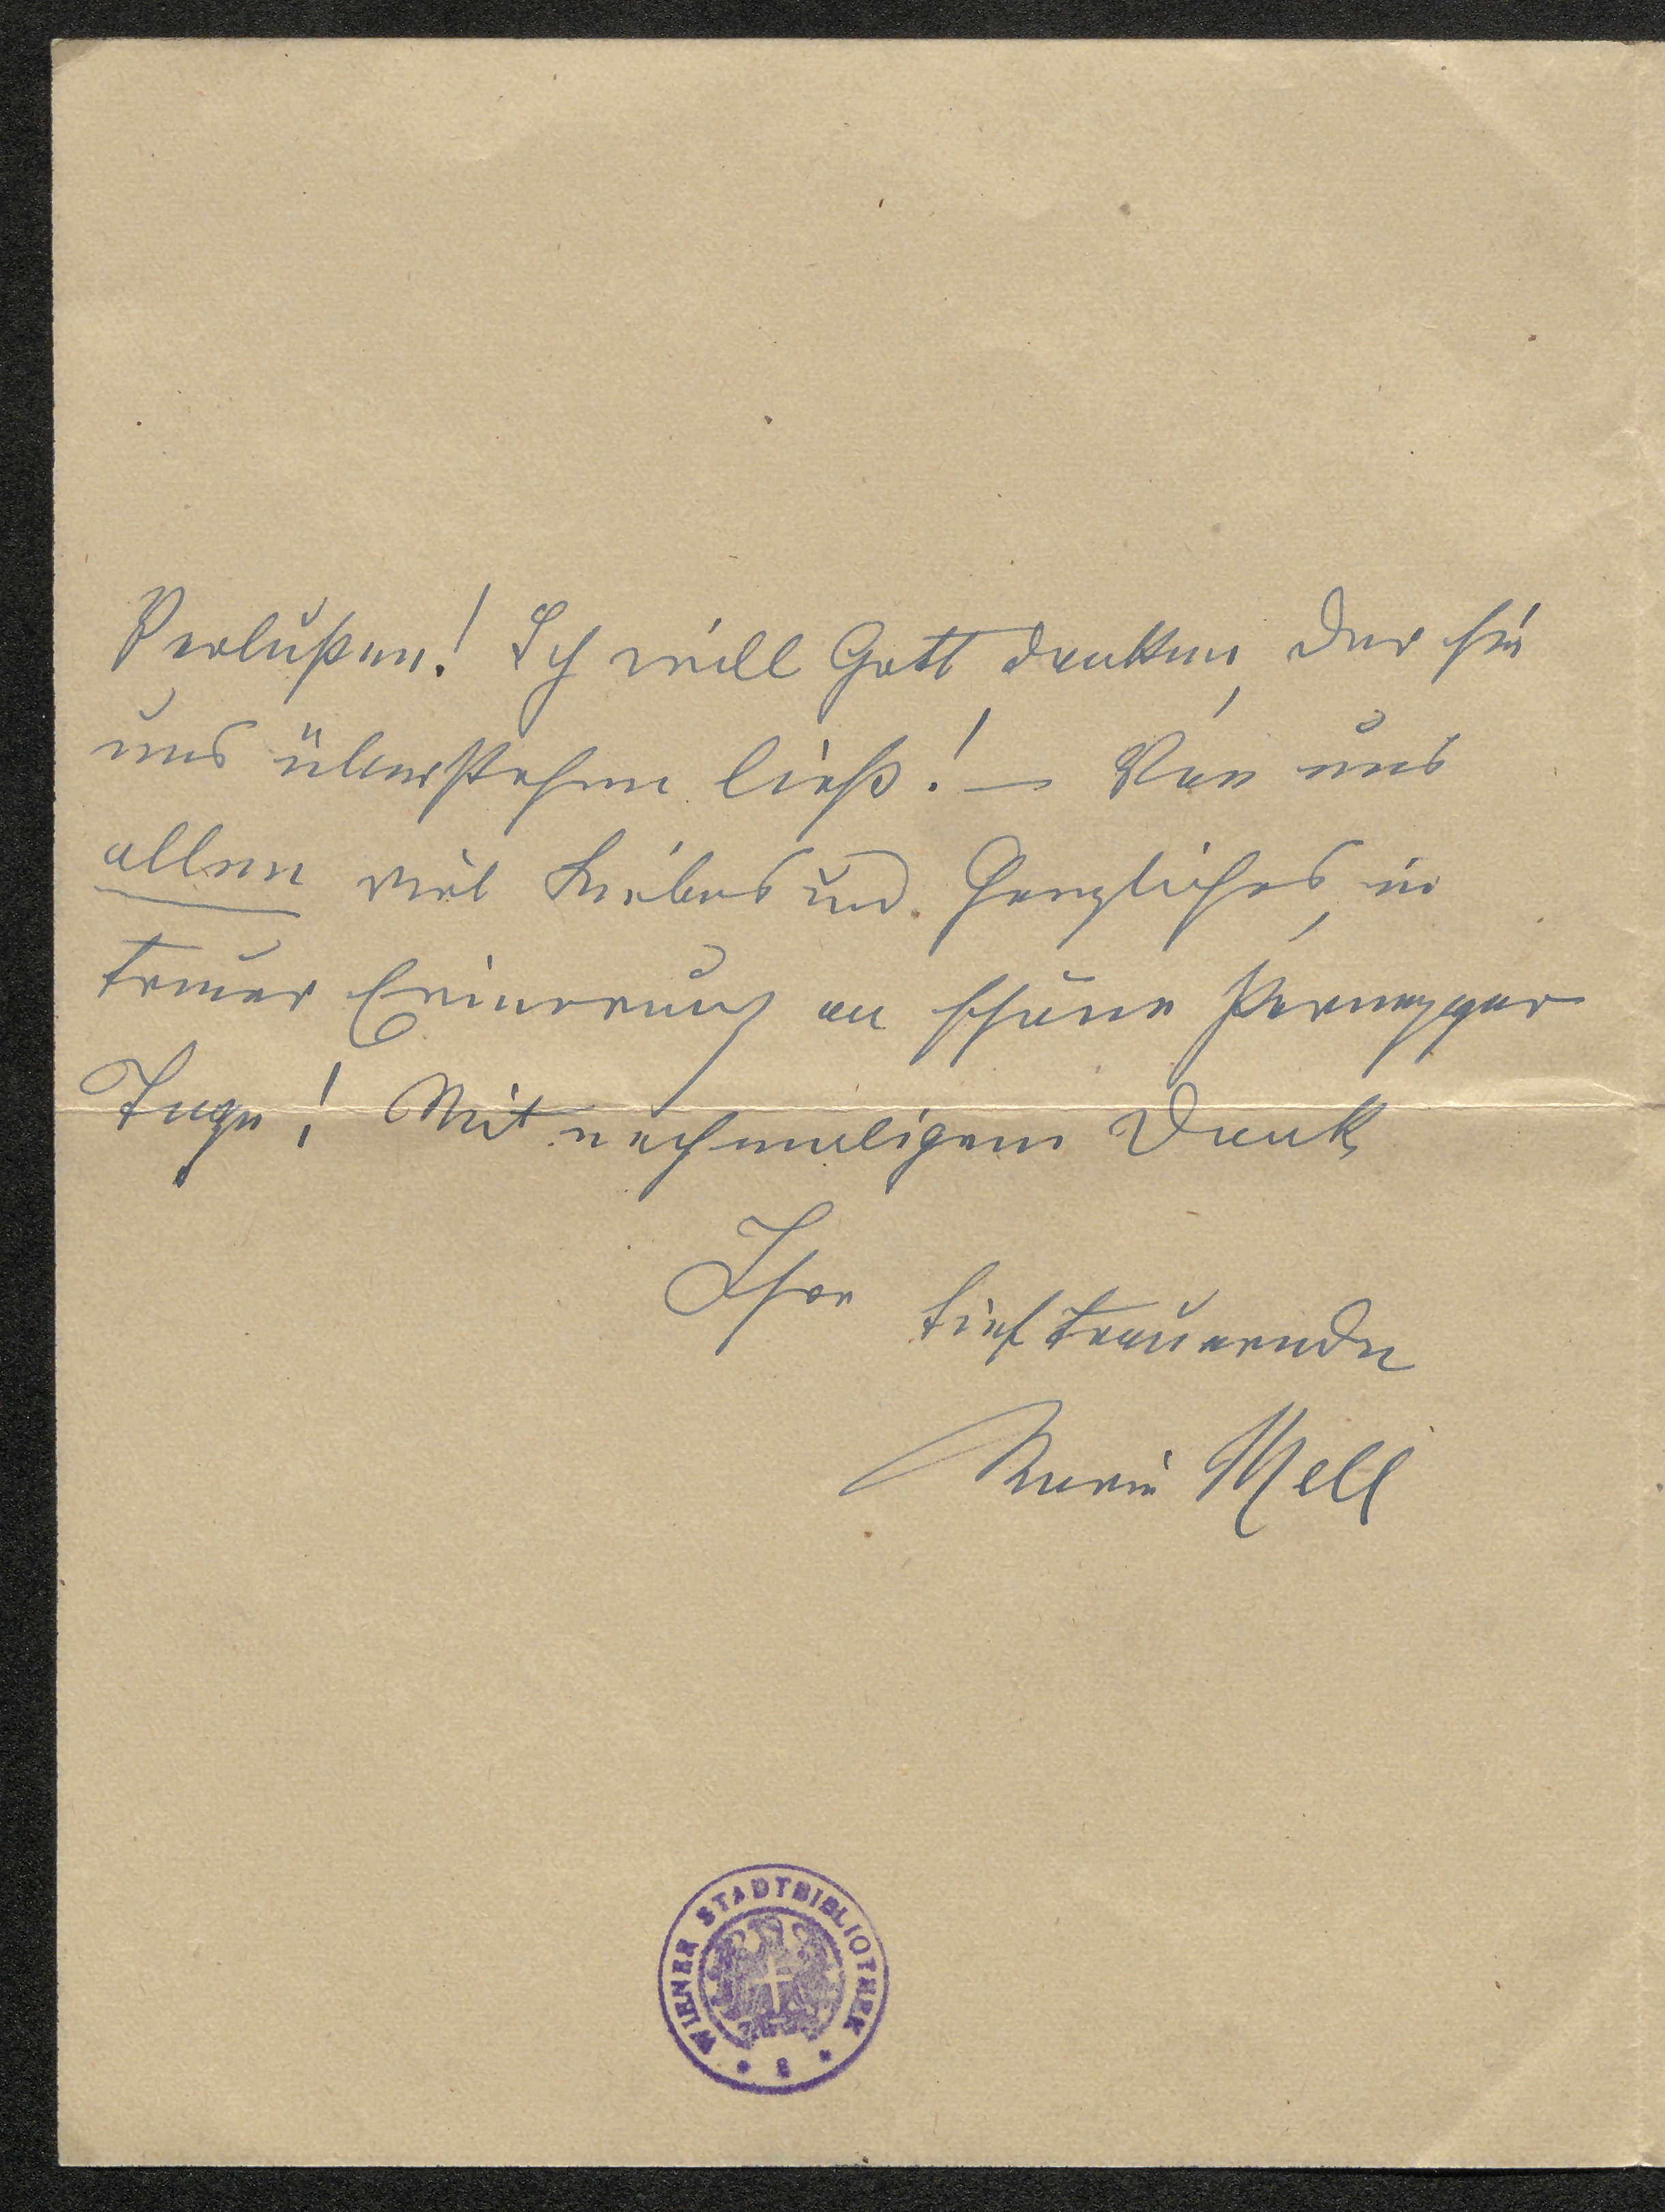 Verlußen! Ich will Gott danken, der sie
uns überstehen ließ! – Von uns
allen viel Liebes und Herzliches, in
treuer Erinerung an schöne Pernegger
Tage! Mit nochmaligem Dank
Ihre tieftrauernde
Marie Mell
WIENER STADTBIBLIOTHEK